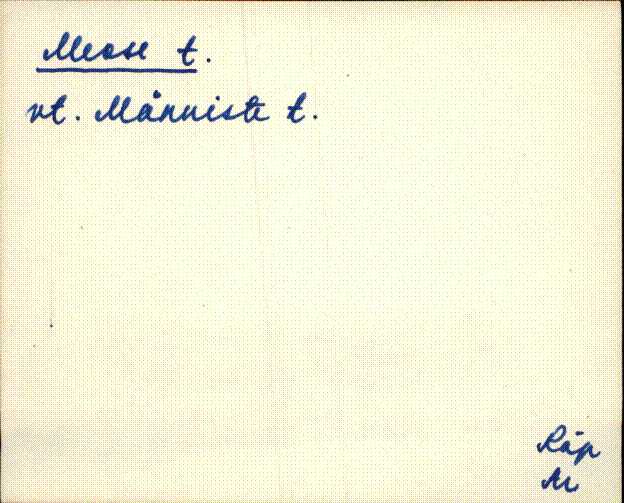 Mease t.
vt. Männiste t.
Räp
Ar